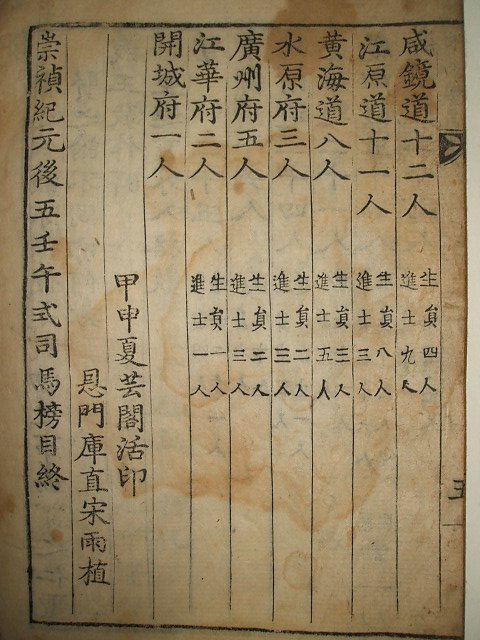 咸鏡道十二人
生貟四人
進士九人
江原道十一人
生貟八人
進士三人
黃海道八人
生貟三人
進士五人
水原府三人
生貟二人
進士三人
廣州府五人
生貟二人
進士三人
江華府二人
生貟一人
進士一人
開城府一人
甲申夏芸閣活印
恩門庫直宋雨植
崇禎紀元後五壬午式司馬榜目終